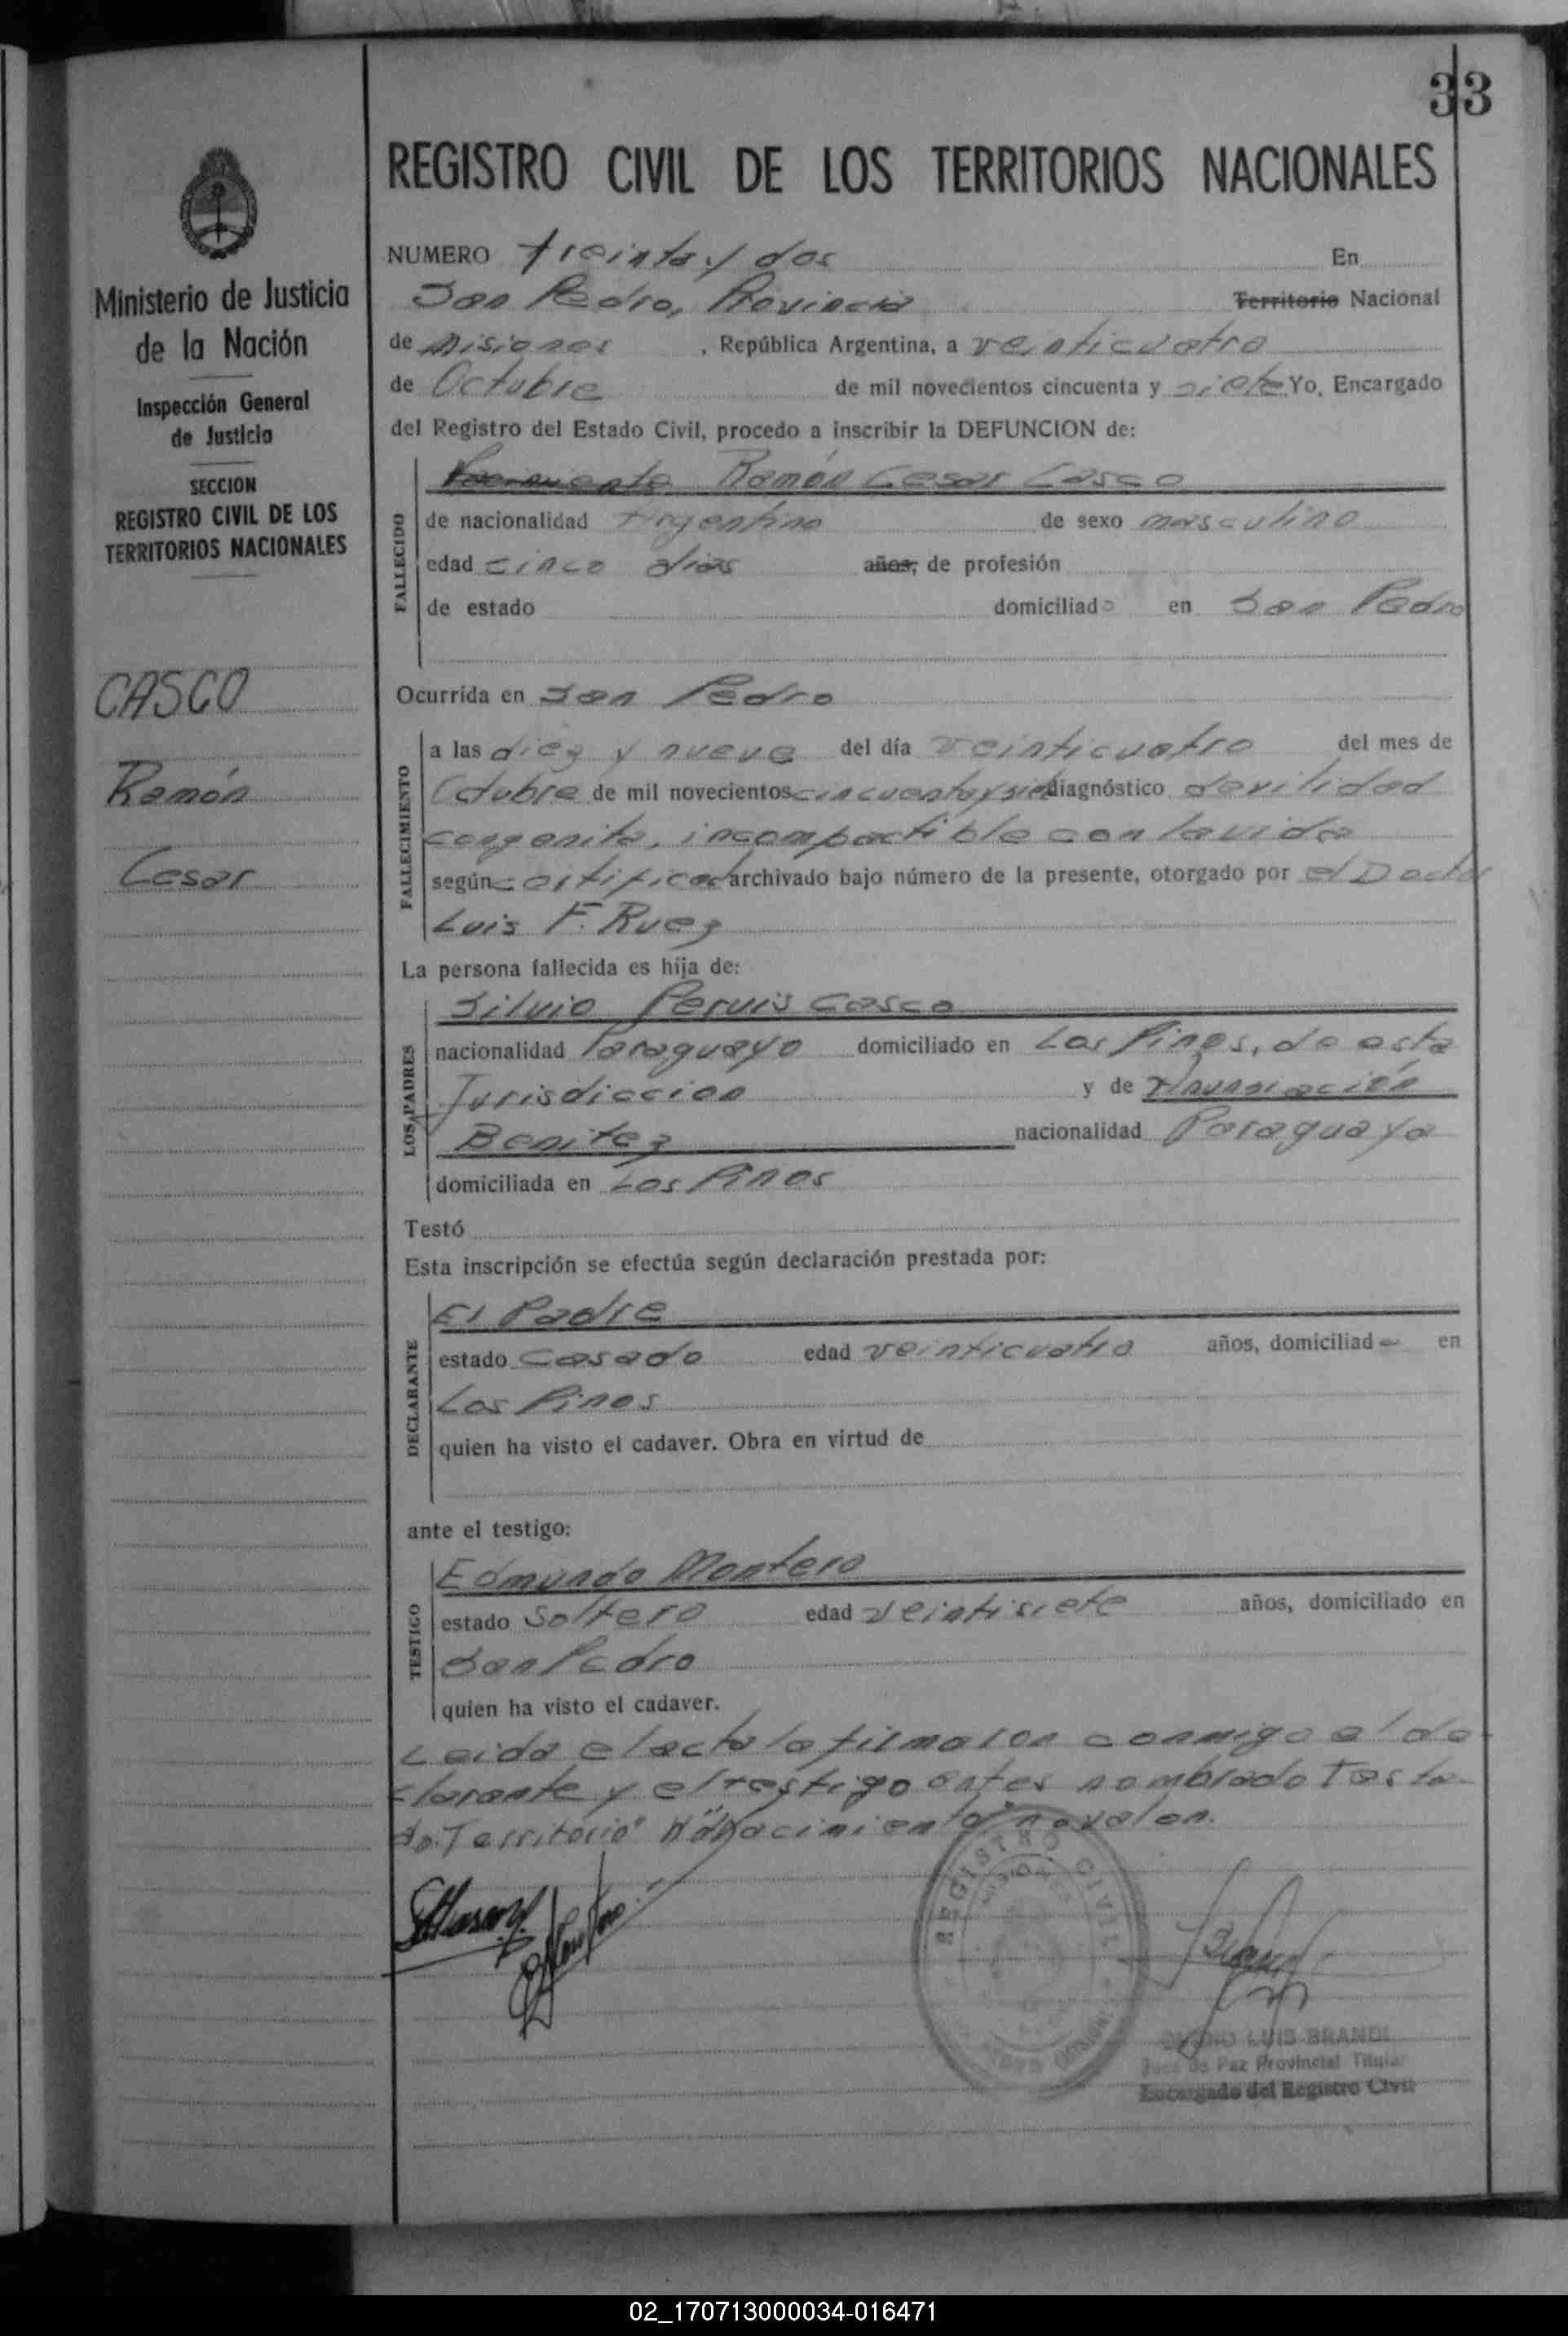 33
REGISTRO CIVIL DE LOS TERRITORIOS NACIONALES
Ministerio de Justicia
de la Nación
Inspección General
de Justicia
SECCION
REGISTRO CIVIL DE LOS
TERRITORIOS NACIONALES
CASCO
Ramón
Cesar
NUMERO treinta y dos En
San Pedro, Provincia Territorio Nacional
de Misiones, República Argentina, a veinticuatro
de Octubre de mil novecientos cincuenta y siete Yo, Encargado
del Registro del Estado Civil, procedo a inscribir la DEFUNCION de:
Ramón Cesar Casco
FALLECIDO
de nacionalidad Argentino de sexo masculino
edad cinco dias años, de profesión
de estado domiciliado en San Pedro
Ocurrida en San Pedro
FALLECIMIENTO
a las diez y nueve del día veinticuatro del mes de
Octubre de mil novecientos cincuenta y siete diagnóstico devilidad
congenita, incompactible con la vida
según certificado archivado bajo número de la presente, otorgado por el Doctor
Luis F. Ruez
La persona fallecida es hija de:
LOS PADRES
Silvio Casco
nacionalidad Paraguayo domiciliado en Los Pinos, de esta
Jurisdiccion y de Anunciación
Benitez nacionalidad Paraguaya
domiciliada en Los Pinos
Testó
Esta inscripción se efectúa según declaración prestada por:
DECLARANTE
El Padre
estado casado edad veinticuatro años, domiciliad en
Los Pinos
quien ha visto el cadaver. Obra en virtud de
ante el testigo:
TESTIGO
Edmundo Montero
estado Soltero edad veintisiete años, domiciliado en
San Pedro
quien ha visto el cadaver.
Leida el acta la firmaron conmigo el de
clarante y el testigo antes nombrado Testa
do "Territorio" "nacimiento" no valen.
REGISTRO CIVIL
LUIS BRANDI
Juez de Paz Provincial Titular
Encargado del Registro Civil
02_170713000034-016471